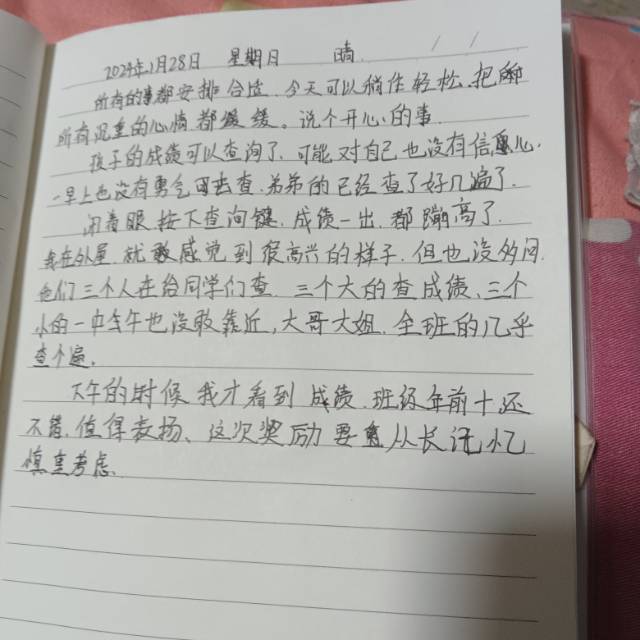 2024年1月28日 星期日 晴
所有的事都安排合适.今天可以稍作轻松.把那
所有沉重的心情都缓缓。说个开心的事.
孩子的成绩可以查询了.可能对自己也没有信心.
一早上也没有勇气去查.弟弟的已经查了好几遍了.
闭着眼按下查询键.成绩一出.都蹦高了.
我在外屋就敢感觉到很高兴的样子.但也没多问.
他们三个人在给同学们查.三个大的查成绩.三个
小的一中午也没敢靠近,大哥大姐.全班的几乎
查个遍.
下午的时候我才看到成绩.班级年前十还
不错.值得表扬、这次奖励要从长记忆
慎重考虑.